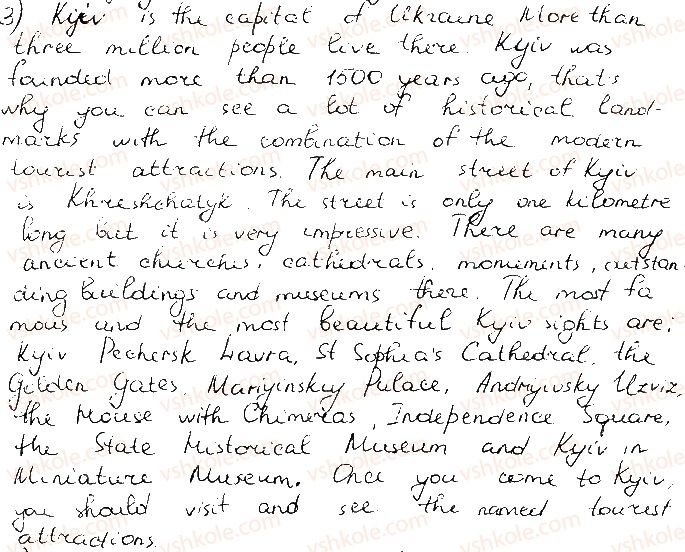 3) Kyiv is the capital of Ukraine More than
three million people live there. Kyiv was
founded more than 1500 years ago, that's
why you can see a lot of historical land-
marks with the combination of the modern
tourist attractions. The main street of Kyiv
is Khreshchatyk. The street is only one kilometre
long but it is very impressive. There are many
ancient churches, cathedrals, monuments, outstan-
ding buildings and museums there. The most fa
mous and the most beautiful Kyiv sights are:
Kyiv Pechersk Lavra, St Sophia's Cathedral, the
Golden Gates, Mariyinskiy Palace, Andriyivsky Uzviz,
the House with Chimeras, Independence Square,
the State Historical Museum and Kyiv in
Miniature Museum. Once you come to Kyiv,
you should visit and see the named tourist
attractions.